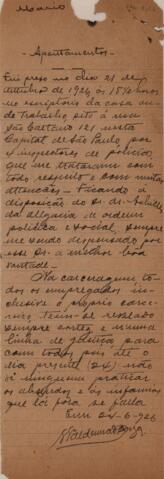 Mario
- Apontamentos -
Fui preso no dia 21 de
outubro de 1926, às 15½ horas
no escriptorio da casa on-
de trabalho, sito á rua
São Caetano 121 nesta
Capital de São Paulo por
inspectores de policia,
que me trataram com
todo respeito e com muitas
attenções. Ficando á
disposição do Sr. Dr.
delegacia de ordem
politica e social, sempre
me sendo dispensado por
esse Dr. a melhor boa
vontade.
Na carceragem to-
dos os empregados in-
clusive o proprio carce-
reiro têm-se revelado
sempre cortez e numa
linha de justiça para
com todos, pois até o
dia presente (24) não
vi ninguem praticar
os absurdos e as infamias
que lá fora se falla
Em 24-6-926